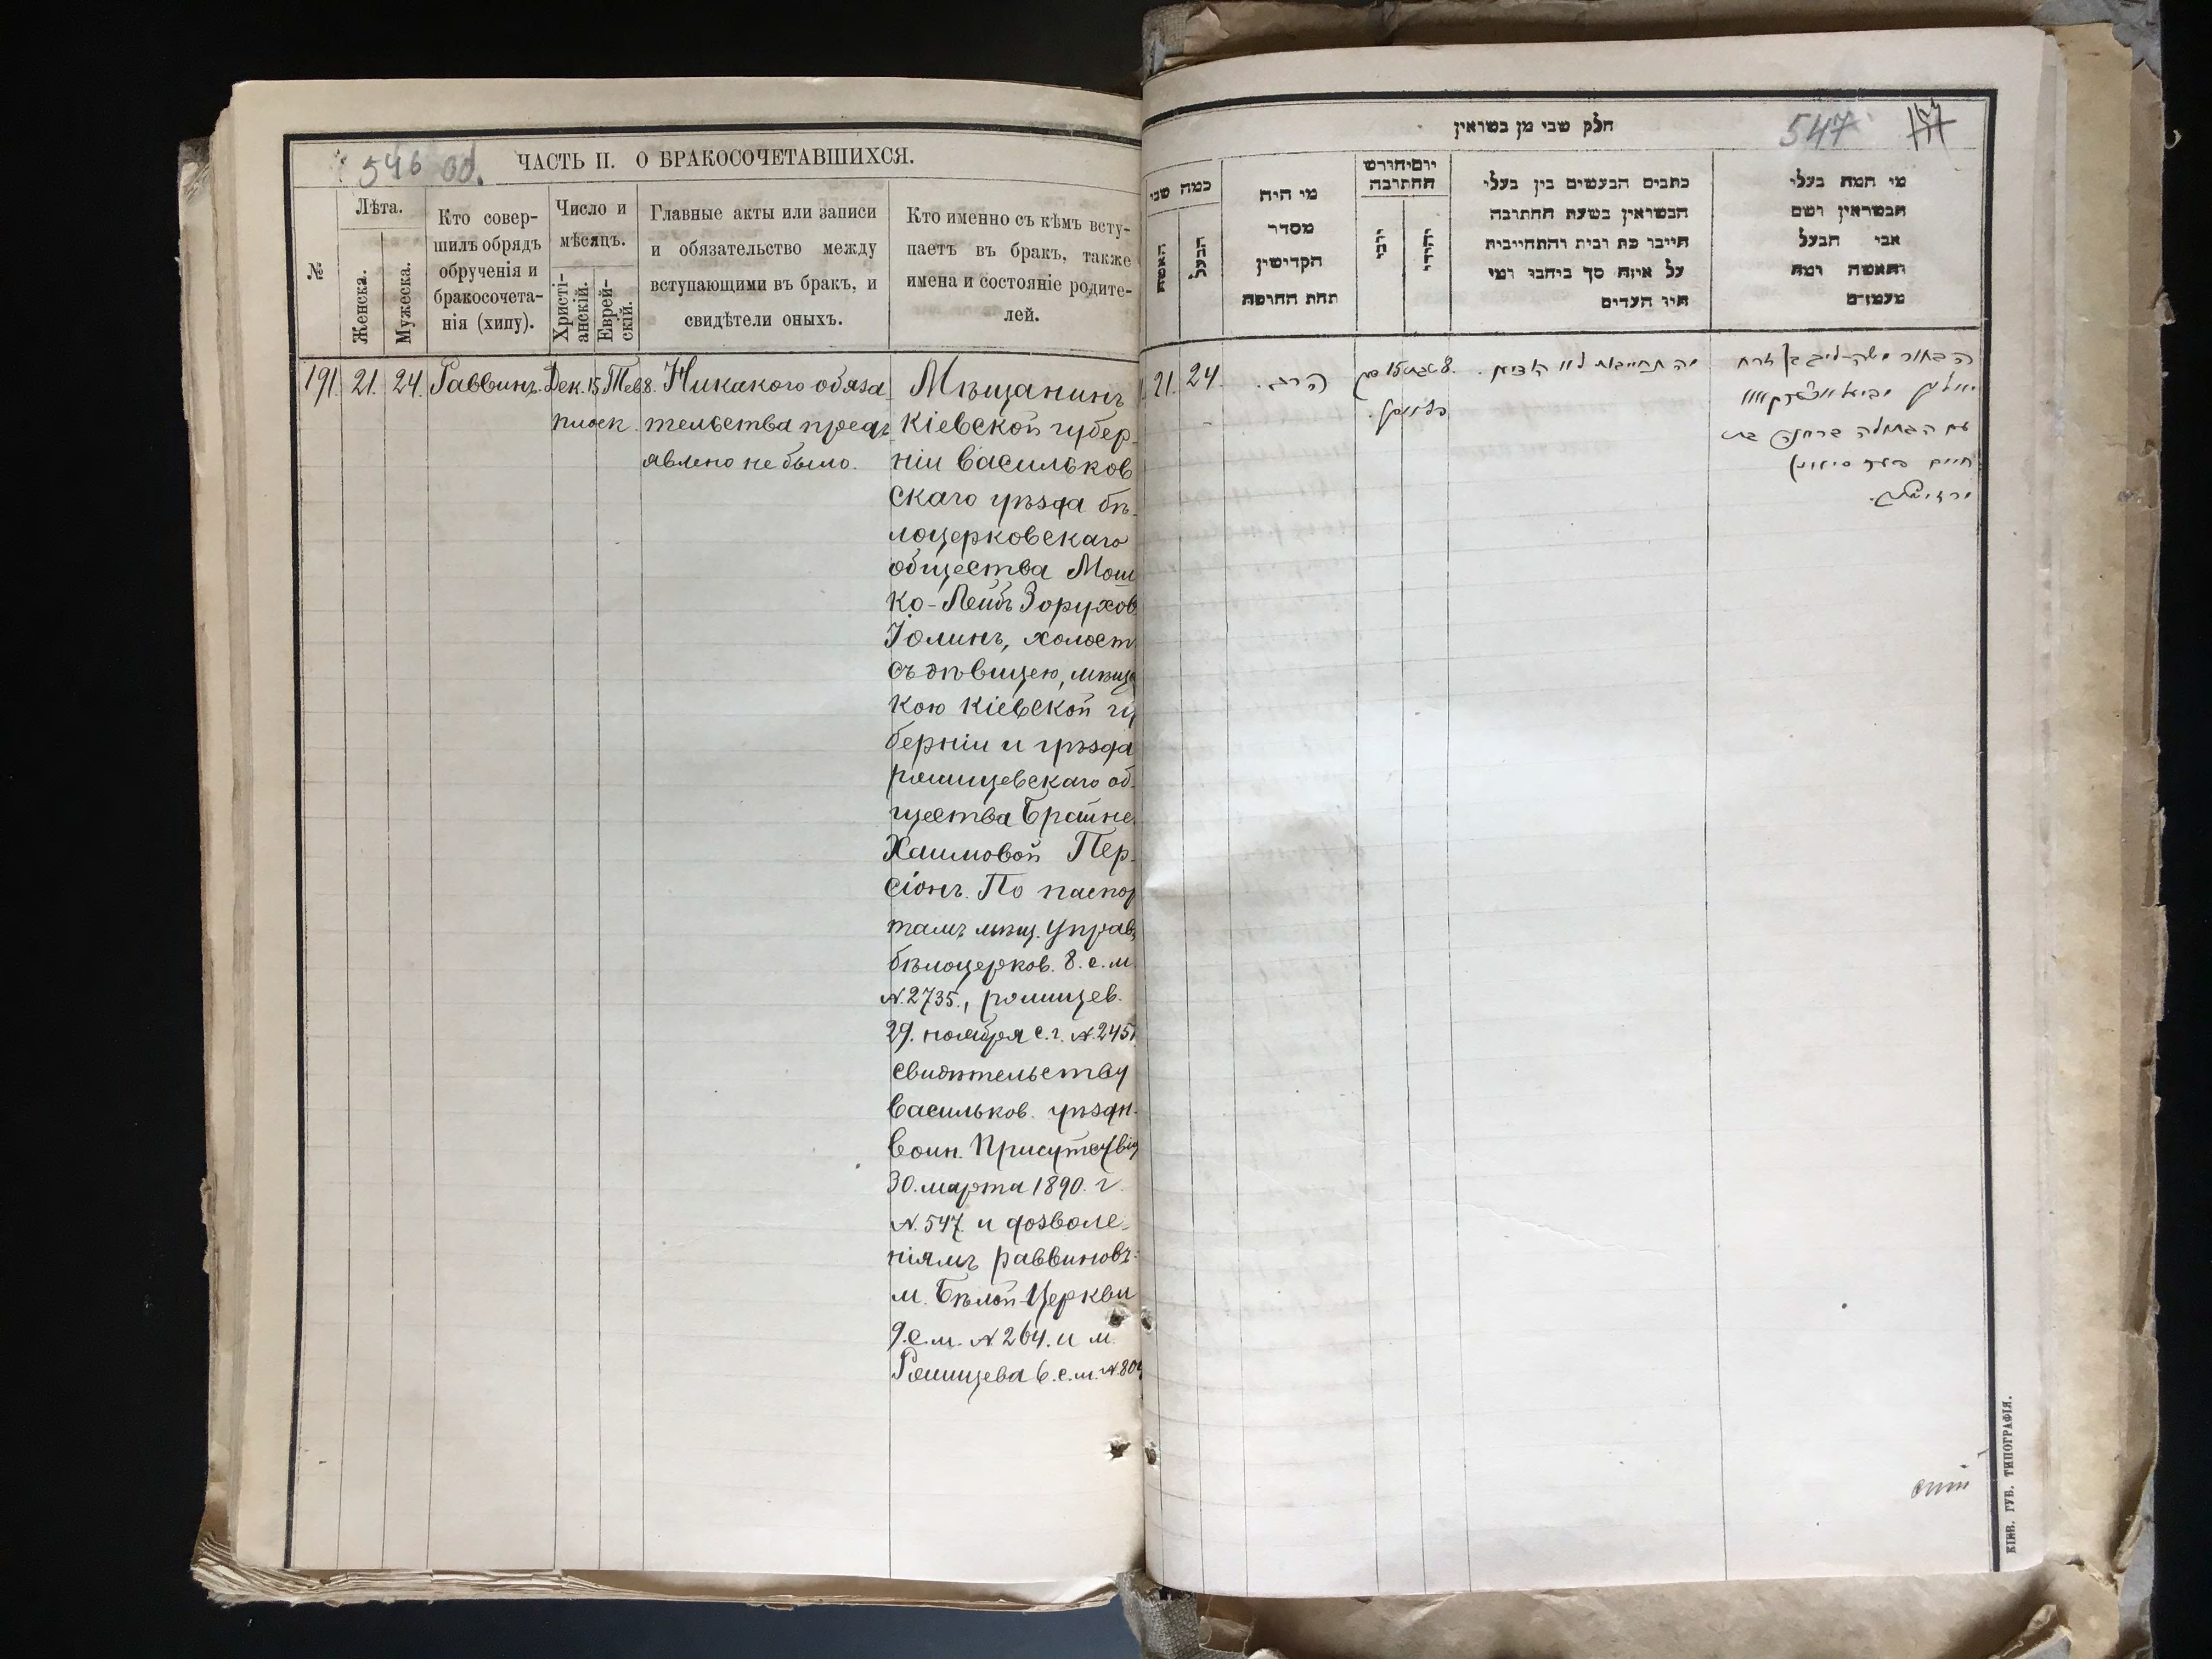 546 об.
ЧАСТЬ II. О БРАКОСОЧЕТАВШИХСЯ.
№
Лѣта.
Женска.
Мужеска.
Кто совер-
шилъ обрядъ
обрученія и
бракосочета-
нія (хипу).
Число и
мѣсяцъ.
Христі-
анскій.
Еврей-
скій.
Главные акты или записи
и обязательство между
вступающими въ бракъ, и
свидѣтели оныхъ.
Кто именно съ кѣмъ всту-
паетъ въ бракъ, также
имена и состояніе родите-
лей.
191. 21. 24. Раввинъ. Дек. 15 Тев. 8.
Никакого обяза-
тельства предъ
явлено не было.
Мѣщанинъ
Кіевской губер-
ніи Васильков
скаго уѣзда бѣ-
лоцерковскаго
общества Мош
ко-Лейбъ Зорухов
Іолинъ, холост
съ дѣвицею, мѣща
кою Кіевской гу
берніи и уѣзда
ромищевскаго об-
щества Брайне
Хаимовой Пер-
сіонъ. По паспор
тамъ мѣщ. Управ
бѣлоцерков. 8. с. м.
N. 2735., ромищев.
29. ноября с. г. N. 2451
свидѣтельству
Васильков. уѣздн.
Воин. Присутствія
30. марта 1890. г.
N. 547. и дозволе-
ніямъ раввиновъ:
м. Бѣлой-Церкви
9. с. м. N 264. и м.
Ромищева 6. с. м. N. 80
547
חלק שני מן נשואין
כמה שני
האשה
הבעל
מי היה
מסדר
הקדישין
תחת החופה
יום וחודש
החתונה
יוני
יהודי
כתבים הנעשים בין בעלי
הנשואין בשעת החתונה
חייבו כת וכית והתחייבות
על איזה סך ביחבו ומי
היו העדים
מי המה בעלי
הנשואין ושם
אבי הבעל
והאשה ומה
מעמדם
21. 24. הרב.
8 טבת 15
הבחור משה-ליב בן זרח
עם הבתולה בריינה בת
חיים
КІЕВ. ГУБ. ТИПОГРАФІЯ.